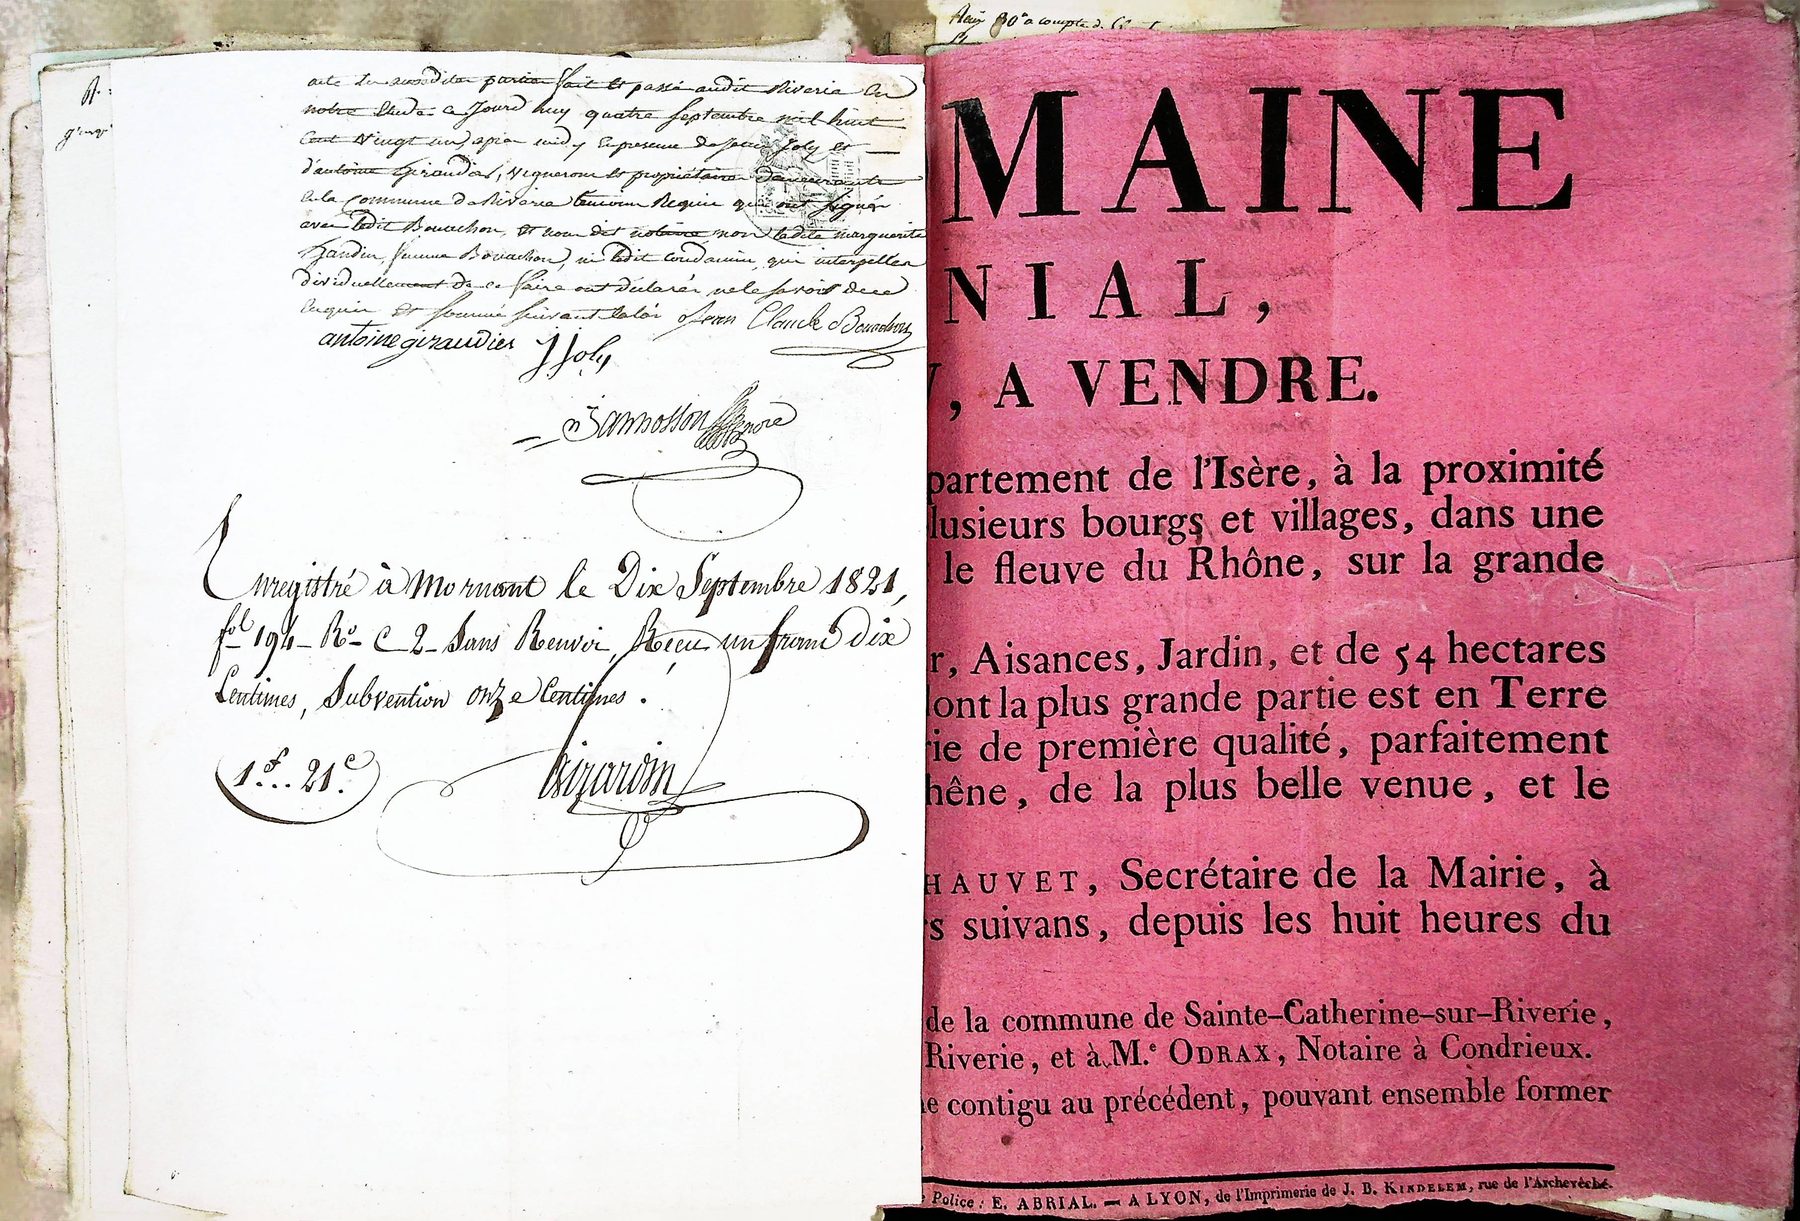 acte fait et passé audit Riverie en
notre Etude ce Jourd huy quatre septembre mil huit
Cent Vingt un, apres midy En presence de Joly et
d'antoine Giraudier, vignerons et propriétaires demeurants
en la Commune de Riverie temoins Requis qui ont signés
avec ledit Bouchon, et non ladite marguerite
femme Bouchon, ni ledit qui interpellés
dividuellement de ce faire ont déclarés ne le savoir de ce
Enquis et sommé suivant la loi Jean Claude Bouchon
antoine giraudier J Joly
Jannosson nore
Enregistré à Mornant le Dix Septembre 1821,
fol 194 Ro C 2 Sans Renvoi, Recu un franc dix
Centimes, Subvention onze Centimes.
1f... 21c.
Girardin
Reçu 80f a compte d
MAINE
NIAL,
, A VENDRE.
partement de l'Isère, à la proximité
lusieurs bourgs et villages, dans une
le fleuve du Rhône, sur la grande
r, Aisances, Jardin, et de 54 hectares
ont la plus grande partie est en Terre
rie de première qualité, parfaitement
hêne, de la plus belle venue, et le
HAUVET, Secrétaire de la Mairie, à
rs suivans, depuis les huit heures du
de la commune de Sainte-Catherine-sur-Riverie,
Riverie, et à M.e ODRAX, Notaire à Condrieux.
e contigu au précédent, pouvant ensemble former
Police : E. ABRIAL. — A LYON, de l'Imprimerie de J. B. KINDELEM, rue de l'Archevêché.